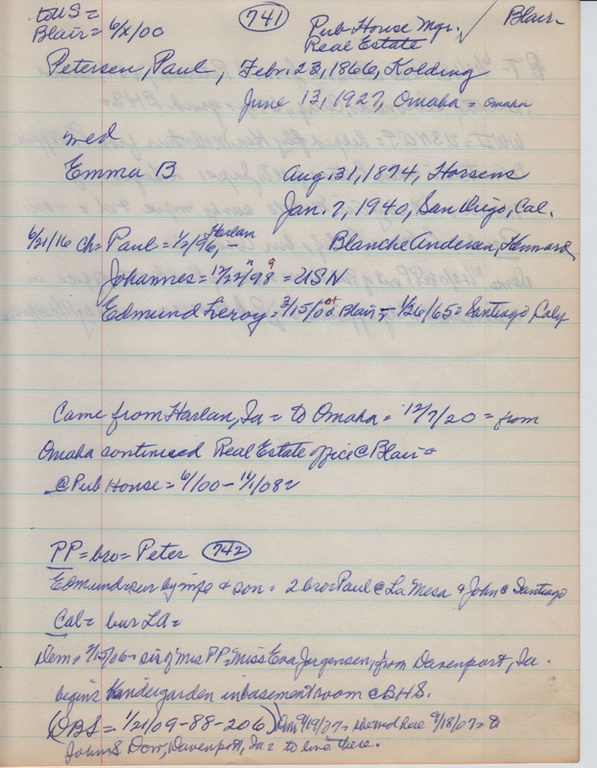 to US =
Blair = 6/2/00
741
Pub House Mgr. / Blair
Real Estate
Petersen, Paul, Feb. 23, 1866, Kolding
June 13, 1927, Omaha = Omaha
wed
Emma B Aug. 31, 1874, Horsens
Jan. 7, 1940, San Diego, Cal.
6/21/16 ch = Paul = 1/2/96, Harlan - Blanche Andersen, Kennard
Johannes = 12/22/98 9 = USN
Edmund Leroy = 3/15/00 Blair = 1/26/65 = Santiago, Caly
Came from Harlan, Ia = to Omaha = 12/7/20 = from
Omaha continued Real Estate office @ Blair
@ Pub House = 6/00 - 11/1/08
PP = bro = Peter 742
Edmund = sur by mpe & son = 2 bros Paul @ La Mesa & John @ Santiago
Cal = bur LA =
Dem = /15/06 = sis of Mrs PP = Miss Eva Jorgensen, from Davenport, Ia.
begins Kindergarden in basement room @ BHS.
(OBS = 1/21/09-88-206) Dem 9/19/07 = 9/18/07 = to
John S Dorr, Davenport, Ia = to live there.